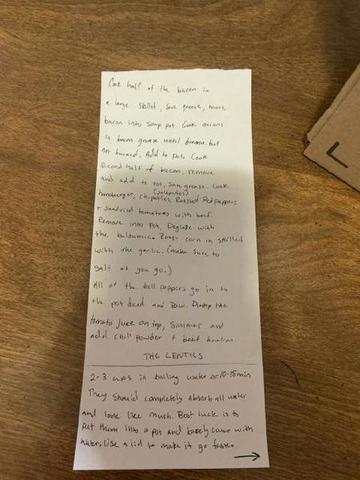 Cook half of the bacon in
a large skillet, save grease, move
bacon into soup pot. Cook onions
in bacon grease until brown but
not burned, Add to pot. Cook
second half of bacon, remove
and add to pot, save grease. Cook
(jalapeños)
hamburger, chipotles, Roasted Red peppers
+ sundried tomatoes with beef.
Remove into pot, Deglaze with
the balsamic. Toast corn in skillet
with the garlic. (make sure to
salt as you go.)
All of the bell peppers go in to
the pot diced and raw. Dump the
tomato juice on top, Simmer and
add chili powder + beef
THE LENTILS
2-3 cups in boiling water for 10-15 min
They should completely absorb all water
and look like mush. Best luck is to
put them into a pot and barely cover with
water. Use a lid to make it go faster.